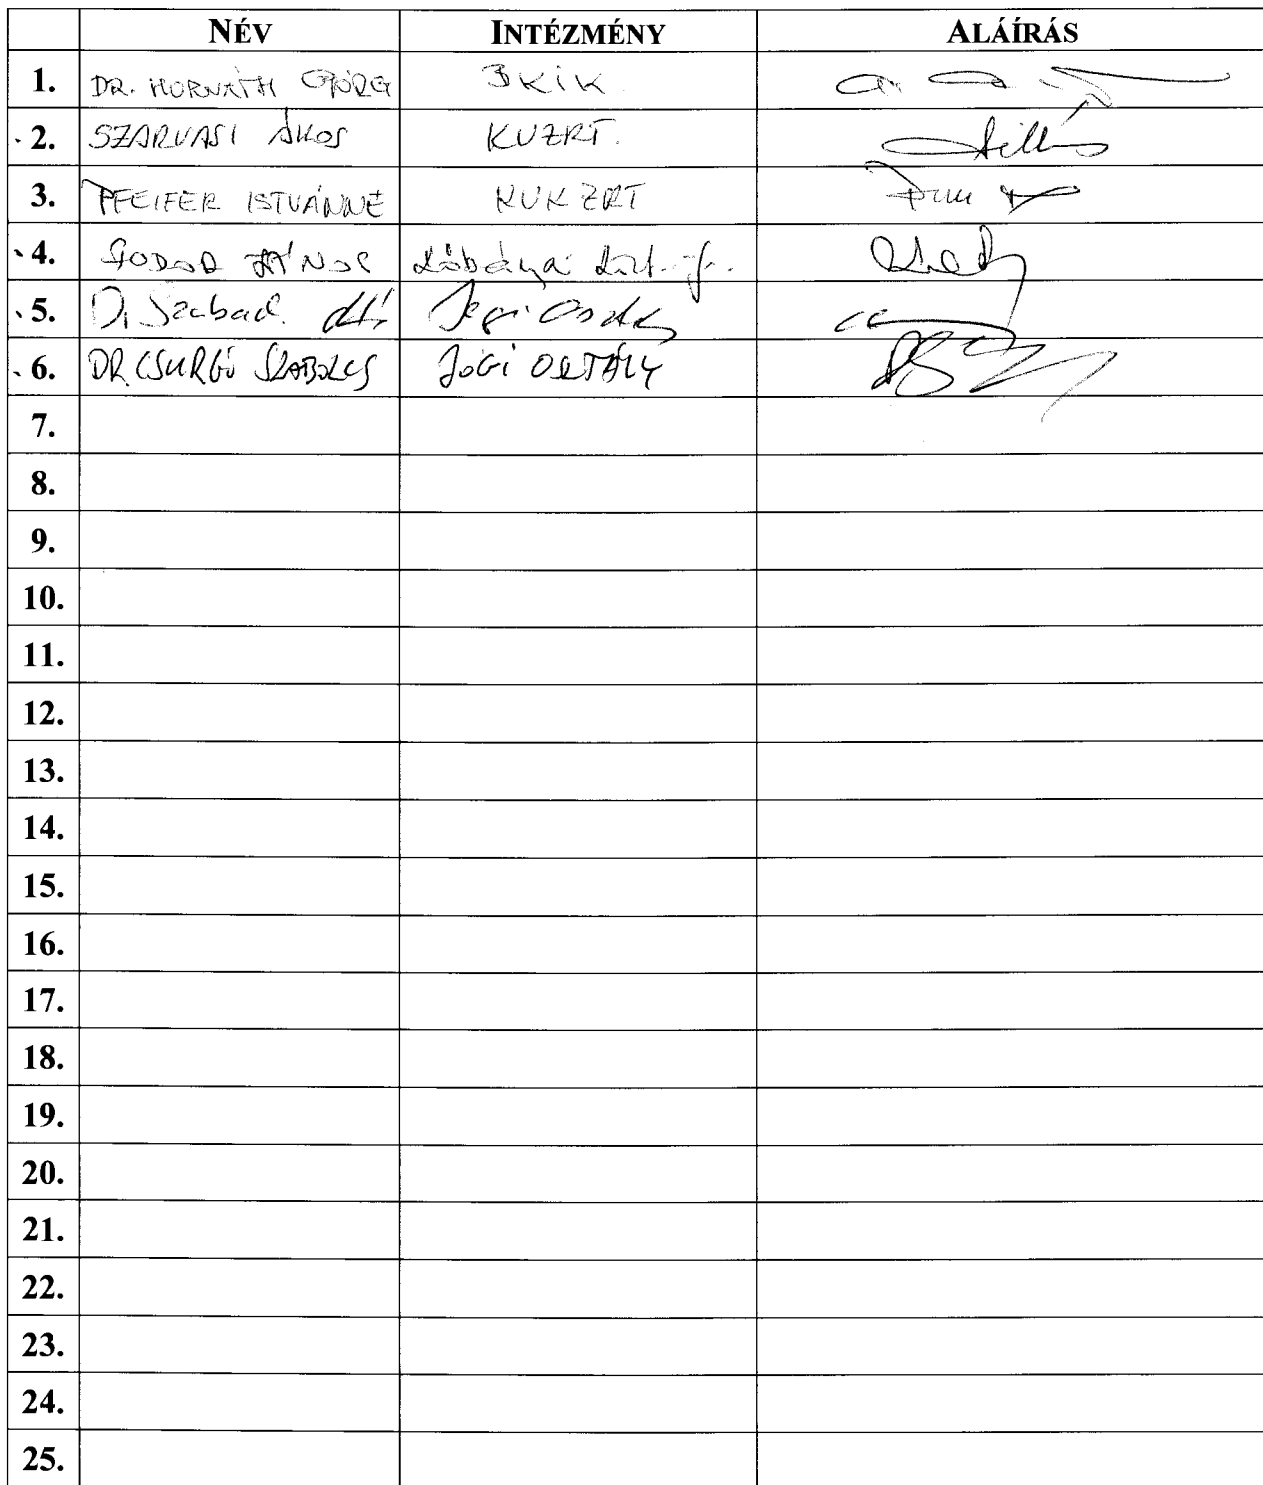 NÉV INTÉZMÉNY ALÁÍRÁS
1. DR. HORVÁTH GYÖRGY BKIK
2. SZARVASI ÁKOS KUZRT.
3. PFEIFER ISTVÁNNÉ KUKZRT
4. JÁNOS Kőbányai
5. Dr Szabad Jogi Osztály
6. DR CSURGÓ SZABOLCS JOGI OSZTÁLY
7.
8.
9.
10.
11.
12.
13.
14.
15.
16.
17.
18.
19.
20.
21.
22.
23.
24.
25.